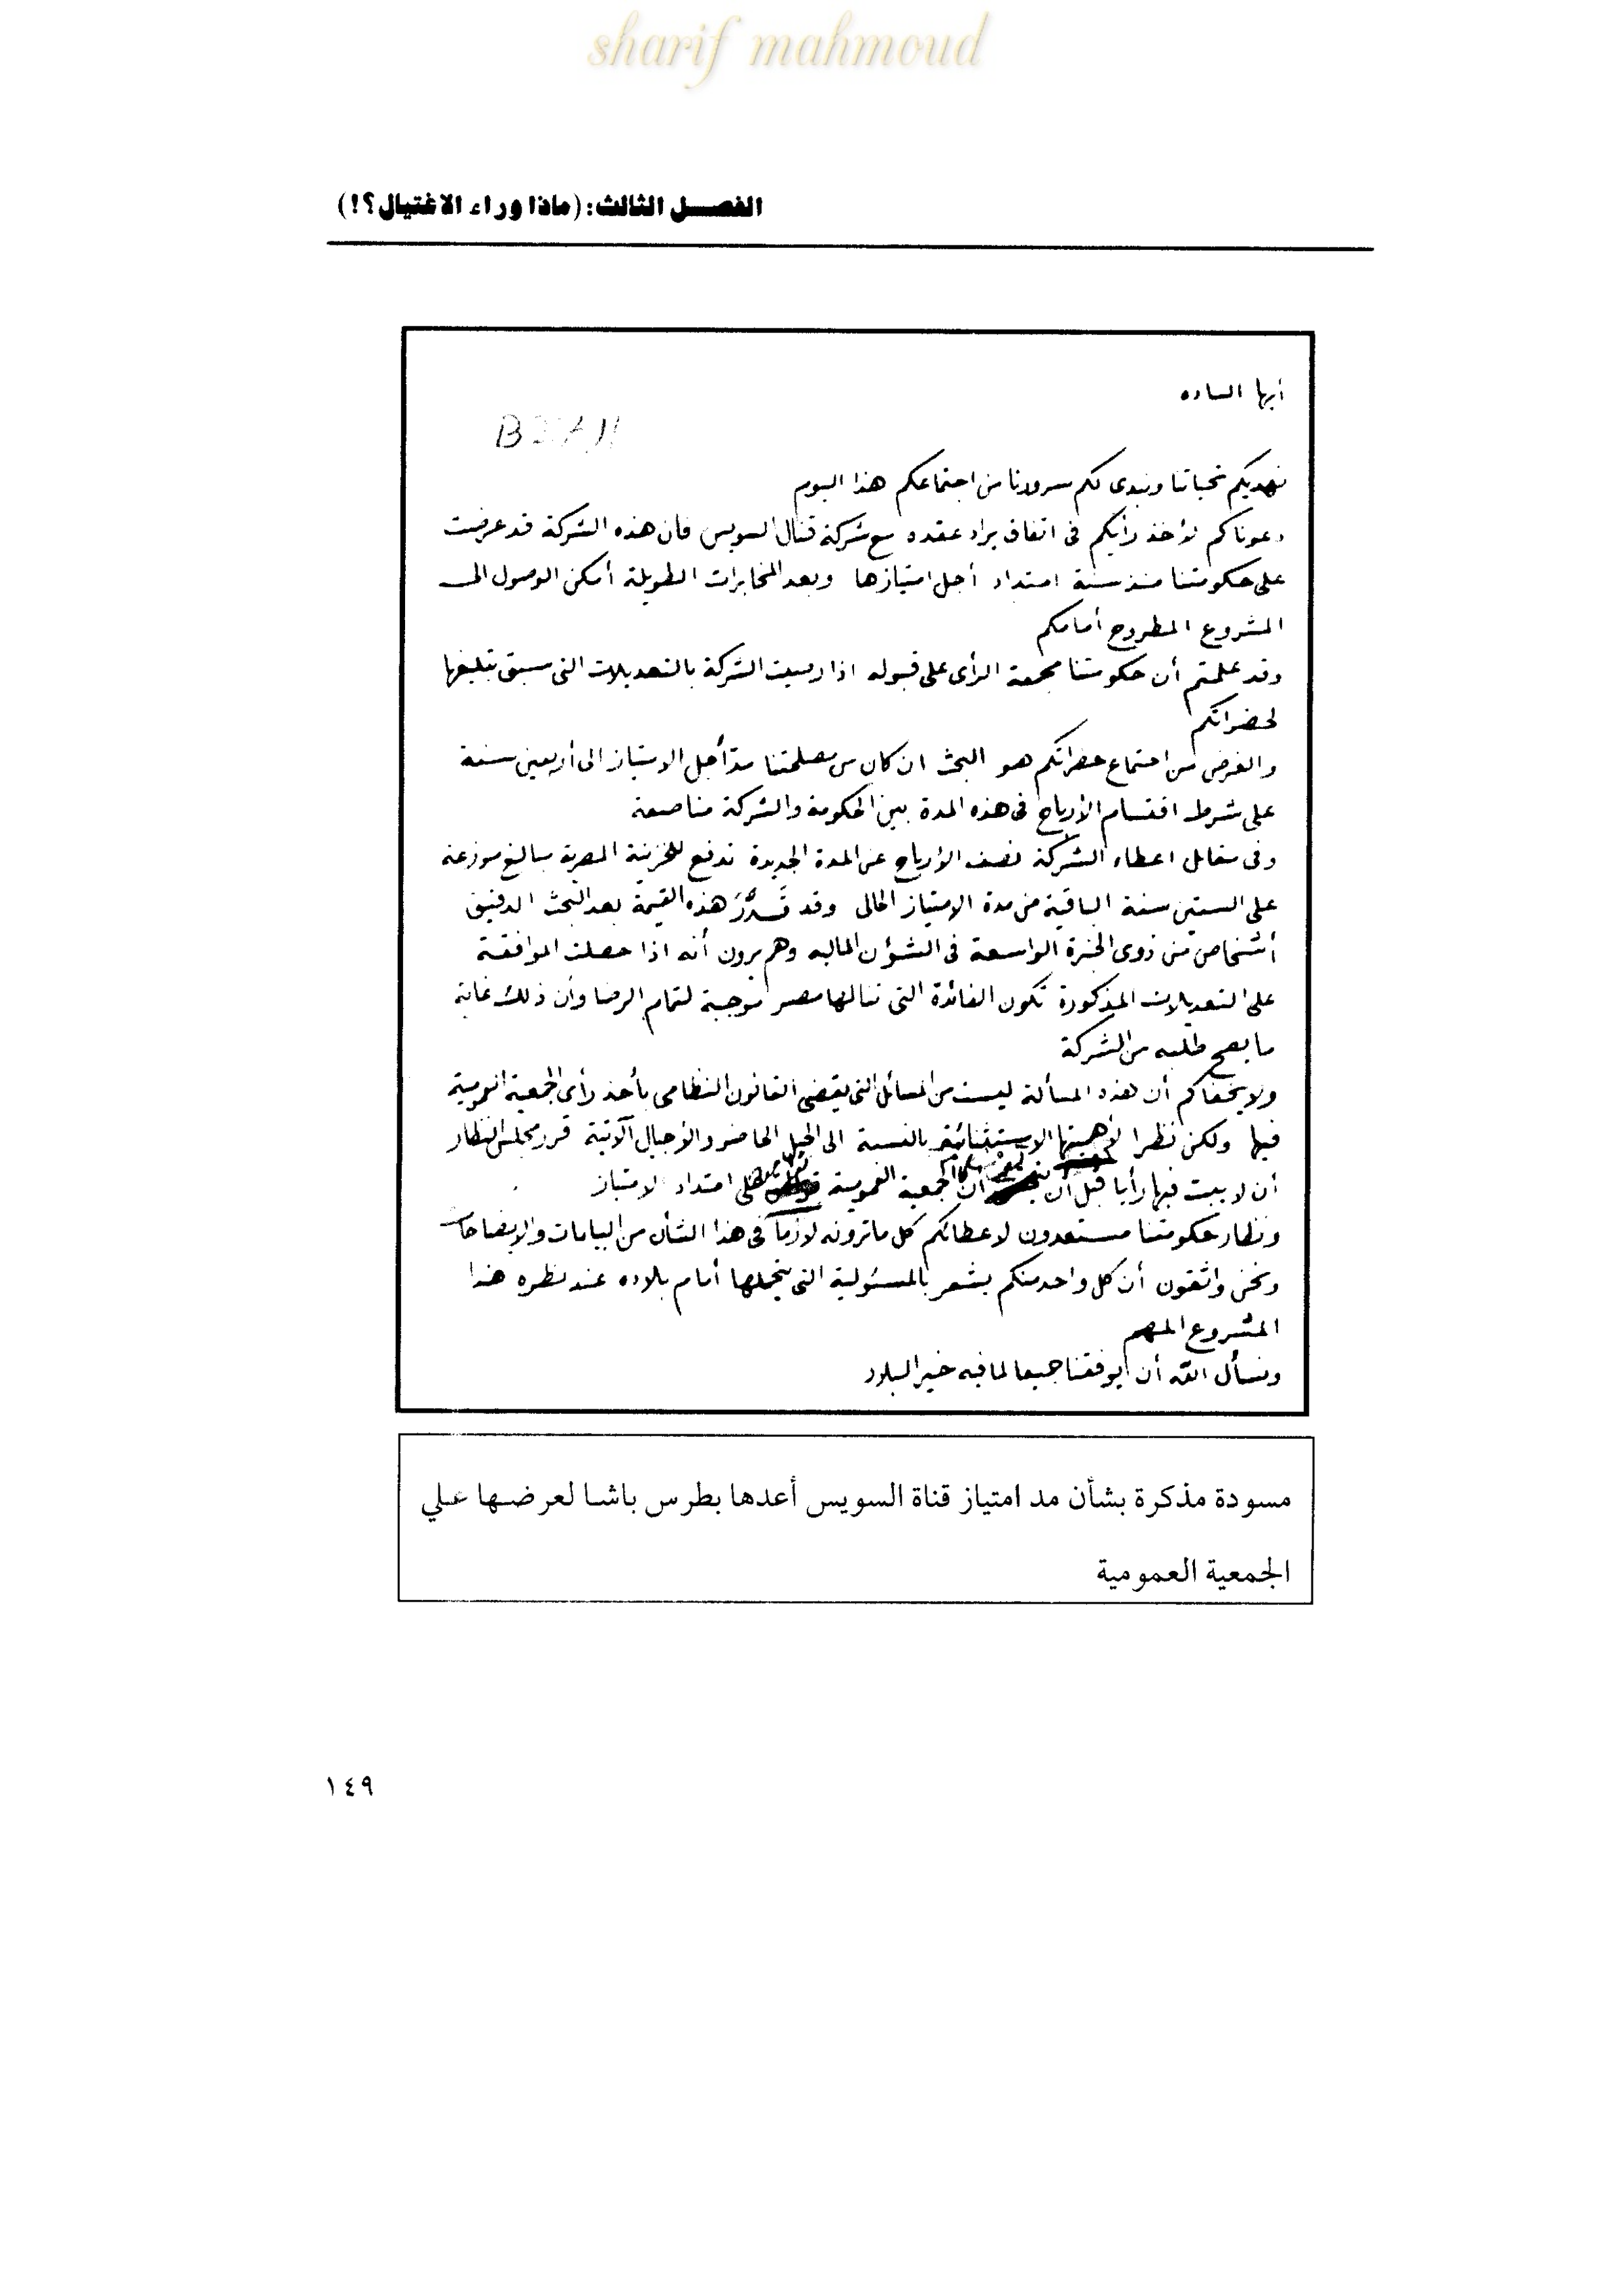 sharif mahmoud
الفصل الثالث: (ماذا وراء الاغتيال؟!)
أيها الساده
نهديكم تحياتنا ونبدى لكم سرورنا من اجتماعكم هذا اليوم
دعوناكم لأخذ رأيكم فى اتفاق يراد عقده مع شركة قنال السويس فان هذه الشركة قد عرضت
على حكومتنا منذ سنة امتداد أجل امتيازها وبعد المخابرات الطويلة أمكن الوصول الى
المشروع المطروح أمامكم
وقد علمتم أن حكومتنا مجمعة الرأى على قبوله اذا رضيت الشركة بالتعديلات التى سبق تبليغها
لحضراتكم
والغرض من اجتماع حضراتكم هو البحث ان كان من مصلحتنا مد أجل الامتياز الى أربعين سنة
على شرط اقتسام الأرباح فى هذه المدة بين الحكومة والشركة مناصفة
وفى مقابل اعطاء الشركة نصف الأرباح عن المدة الجديدة تدفع للخزينة المصرية مبالغ موزعة
على الستين سنة الباقية من مدة الامتياز الحالى وقد قدّر هذه القيمة بعد البحث الدقيق
أشخاص من ذوى الخبرة الواسعة فى الشؤن الماليه وهم يرون أنه اذا حصلت الموافقة
على التعديلات المذكورة تكون الفائدة التى تنالها مصر موجبة لتمام الرضا وأن ذلك غاية
ما يصح طلبه من الشركة
ولا يخفاكم أن هذه المسألة ليست من المسائل التى يقضى القانون النظامى بأخذ رأى الجمعية العمومية
فيها ولكن نظرا لأهميتها الاستثنائية بالنسبة الى الجيل الحاضر والأجيال الآتية قرر مجلس النظار
أن لا يبت فيها رأيا قبل أن الجمعية العمومية على امتداد الامتياز
ونظار حكومتنا مستعدون لاعطائكم كل ما ترونه لازما فى هذا الشأن من البيانات والايضاحات
ونحن واثقون أن كل واحد منكم يشعر بالمسئولية التى يتحملها أمام بلاده عند نظره هذا
المشروع المهم
ونسأل الله أن يوفقنا جميعا لما فيه خير البلاد
مسودة مذكرة بشأن مد امتياز قناة السويس أعدها بطرس باشا لعرضها علي
الجمعية العمومية
١٤٩